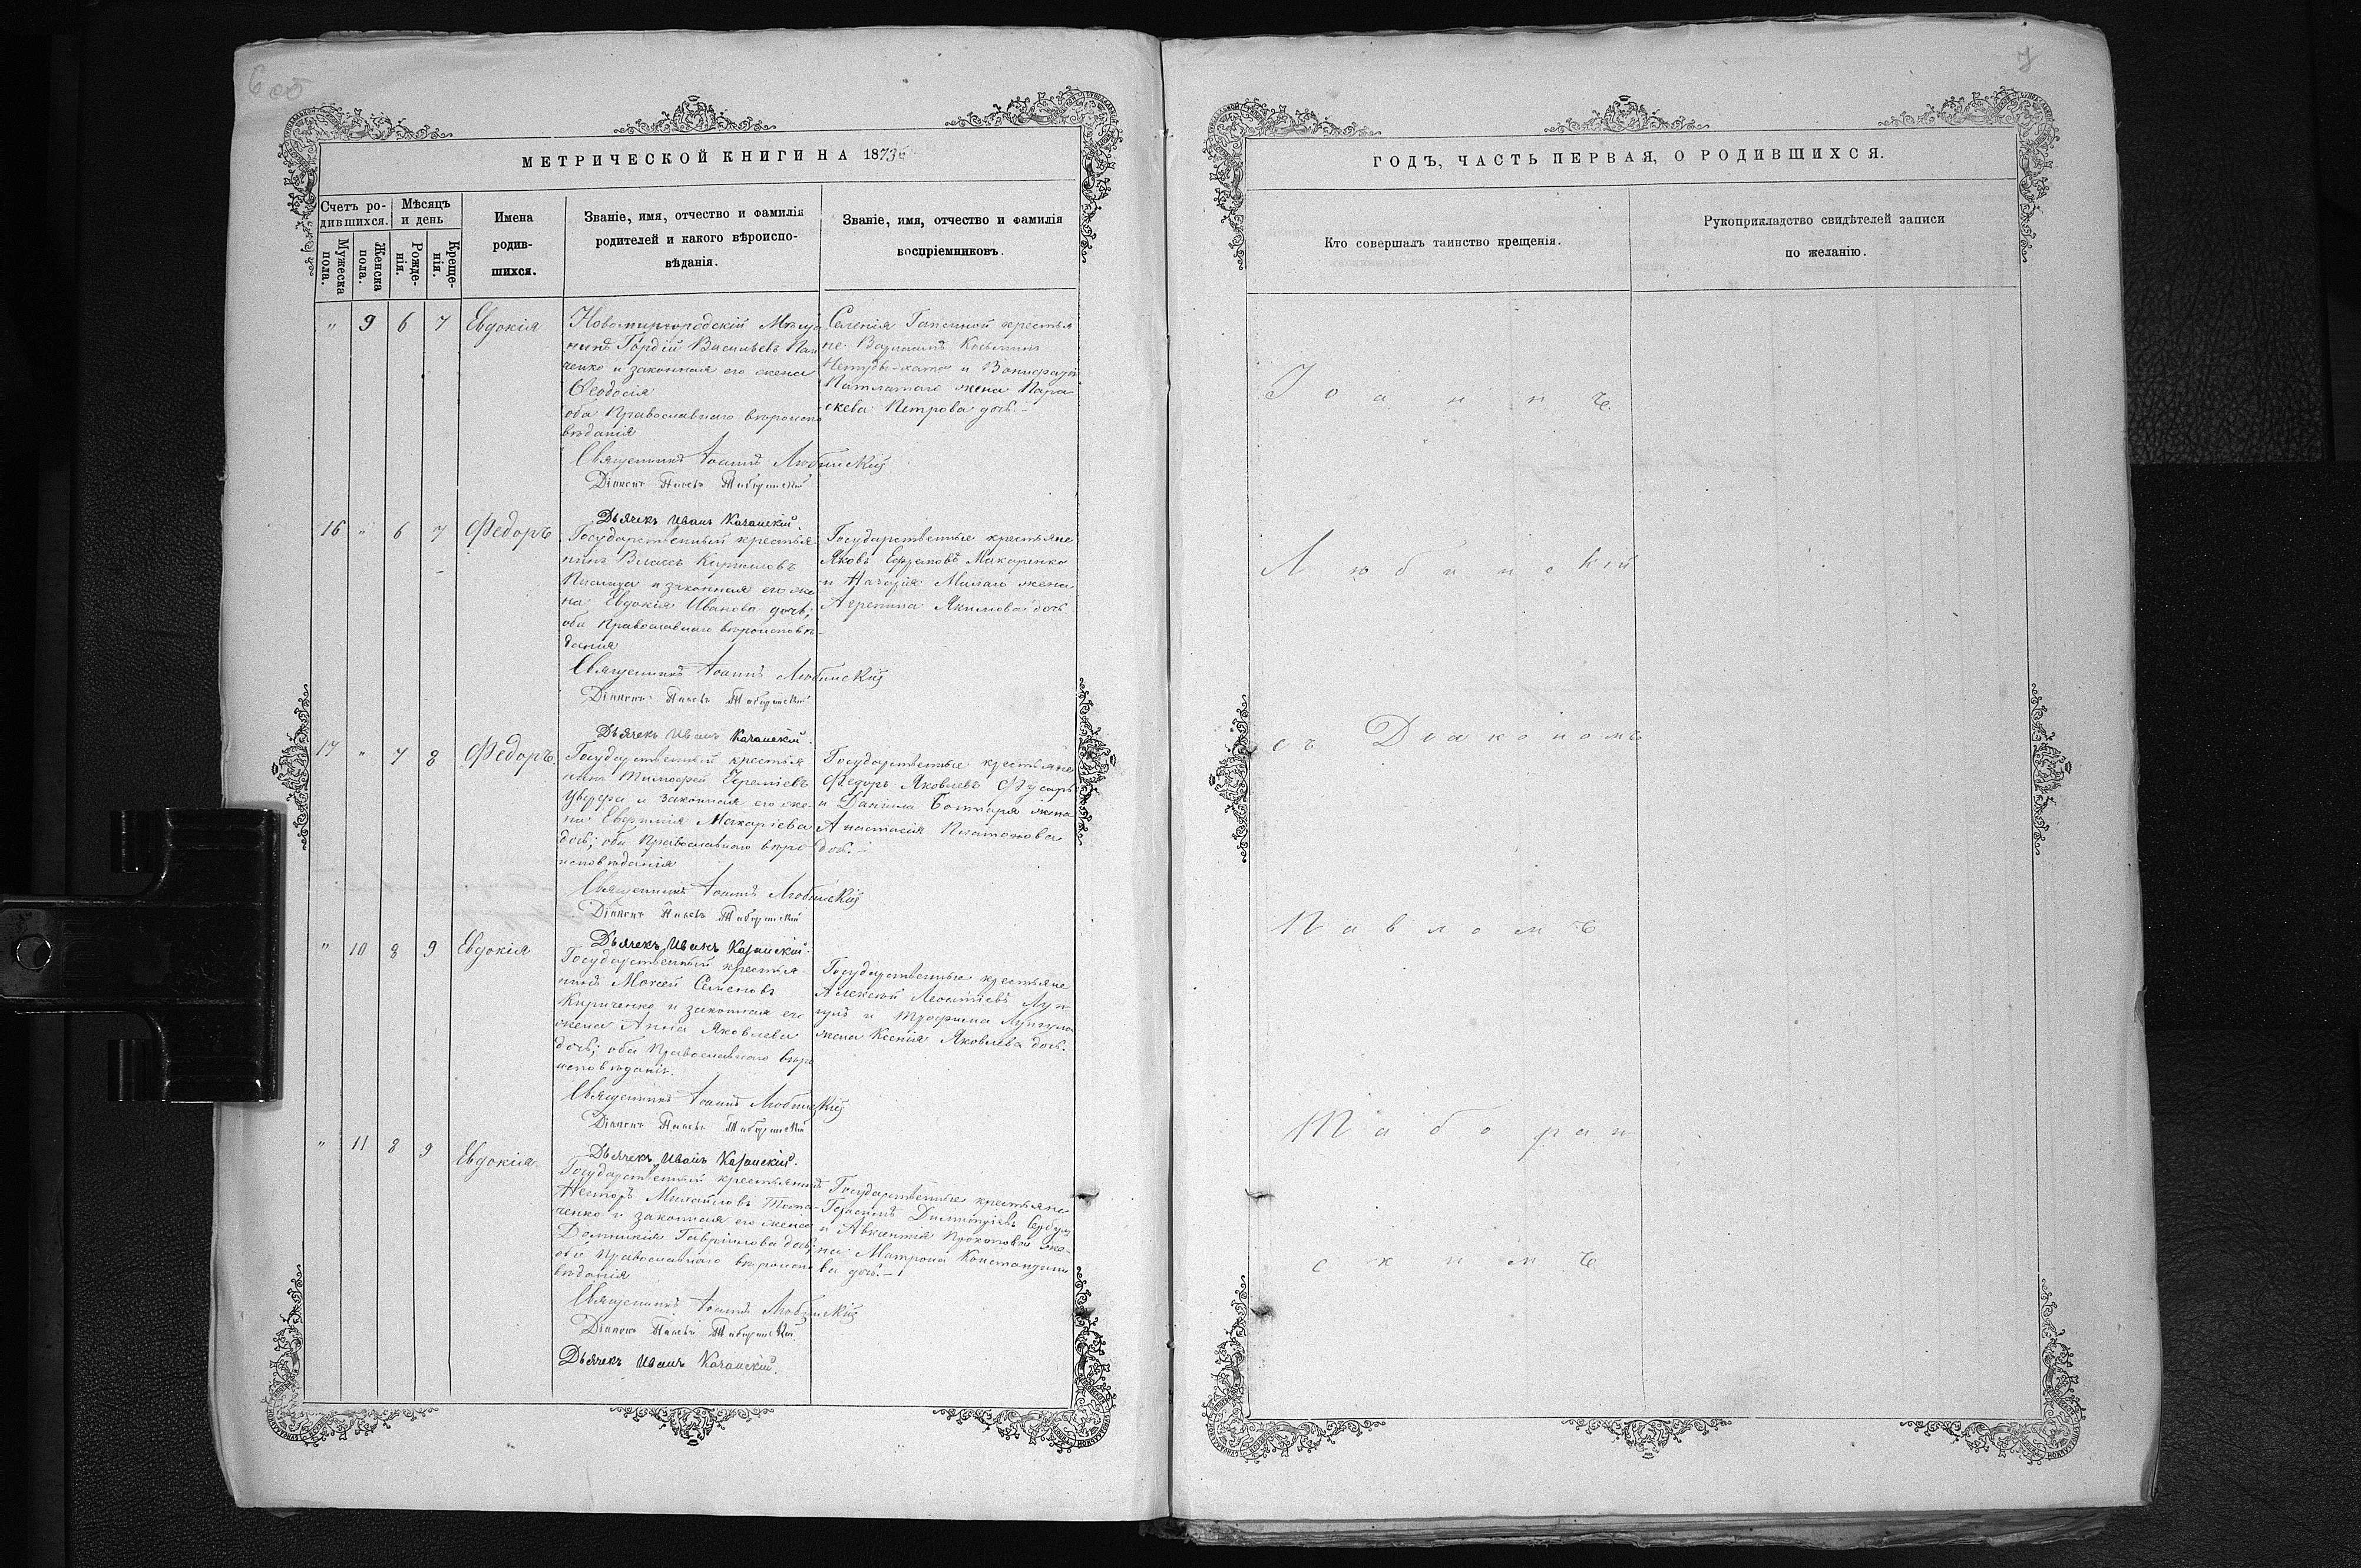 6 об
МЕТРИЧЕСКОЙ КНИГИ НА 1873й
Счетъ родившихся.
Мѣсяцъ и день
Мужеска пола.
Женска пола.
Рожденія.
Крещенія.
Имена
родив-
шихся.
Званіе, имя, отчество и фамилія
родителей и какого вѣроиспо-
вѣданія.
Званіе, имя, отчество и фамилія
воспріемниковъ.
" 9 6 7 Евдокія
Новомиргородскій Мѣща
нинъ Гордій Васильевъ Пан
ченко и законная его жена
Ѳеодосія
оба Православнаго вѣроиспо
вѣданія
Священникъ Іоаннъ Любинскій
Діаконъ Павелъ Таборанскій
Дьячекъ Иванъ Качанскій.
Селенія крестья
не Косьминъ
и Вонифатія
жена Пара
скева Петрова дочь.-
16 " 6 7 Федоръ
Государственный крестья-
нинъ Власъ Кириловъ
и законная его же
на Евдокія Иванова дочь;
оба Православнаго вѣроисповѣ-
данія
Священникъ Іоаннъ Любинскій
Діаконъ Павелъ Таборанскій
Дьячекъ Иванъ Качанскій.
Государственные крестьяне
Яковъ Ефремовъ Макаренко
и Назарія Малаго жена
Агрепина Якимова дочь
17 " 7 8 Федоръ.
Государственный крестья
нинъ Тимофей Іереміевъ
и законная его же-
на Евфимія Макаріева
дочь; оба Православнаго вѣро
исповѣданія
Священникъ Іоаннъ Любинскій
Діаконъ Павелъ Таборанскій
Дьячекъ Иванъ Качанскій.
Государственные крестьяне
Федоръ Яковлевъ Фусаръ
и Данила Бонтаря жена
Анастасія Платонова
дочь.-
" 10 8 9 Евдокія
Государственный крестья
нинъ Моисей Семеновъ
Кириченко и законная его
жена Анна Яковлева
дочь; оба Православнаго вѣро
исповѣданія.
Священникъ Іоаннъ Любинскій
Діаконъ Павелъ Таборанскій
Дьячекъ Иванъ Качанскій.
Государственные крестьяне
Алексѣй Леонтіевъ Лун
гулъ и Трофима Лунгула
жена Ксенія Яковлева дочь.
" 11 8 9 Евдокія
Государственный крестьянинъ
Несторъ Михайловъ
ченко и законная его жена
Домникія Гавріилова дочь;
оба Православнаго вѣроиспо
вѣданія
Священникъ Іоаннъ Любинскій
Діаконъ Павелъ Таборанскій
Дьячекъ Иванъ Качанскій.
Государственные крестьяне
Герасимъ Димитріевъ Сербулъ
и Авксентія Прокопова же-
на Матрона Константино
ва дочь.-
7
ГОДЪ, ЧАСТЬ ПЕРВАЯ, О РОДИВШИХСЯ.
Кто совершалъ таинство крещенія.
Рукоприкладство свидѣтелей записи
по желанію.
Іоаннъ
Любинскій
съ Діакономъ
Павломъ
Таборан
скимъ